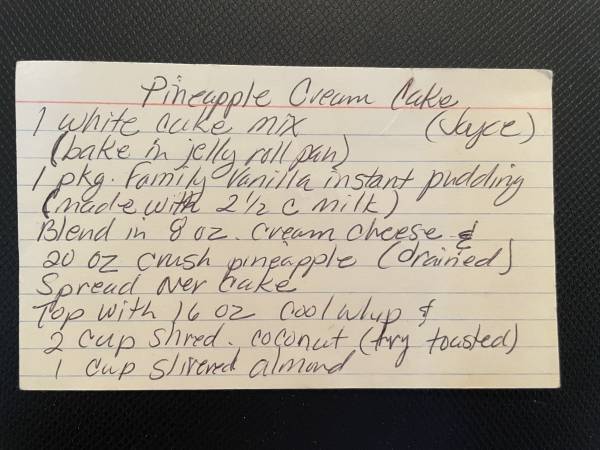 Pineapple Cream Cake
1 white cake mix (Joyce)
(bake in jelly roll pan)
1 pkg. Family Vanilla instant pudding
(made with 2 1/2 c milk)
Blend in 8 oz. cream cheese &
20 oz crush pineapple (drained)
Spread over cake
Top with 16 oz cool whip &
2 cup shred. coconut (try toasted)
1 cup slivered almond